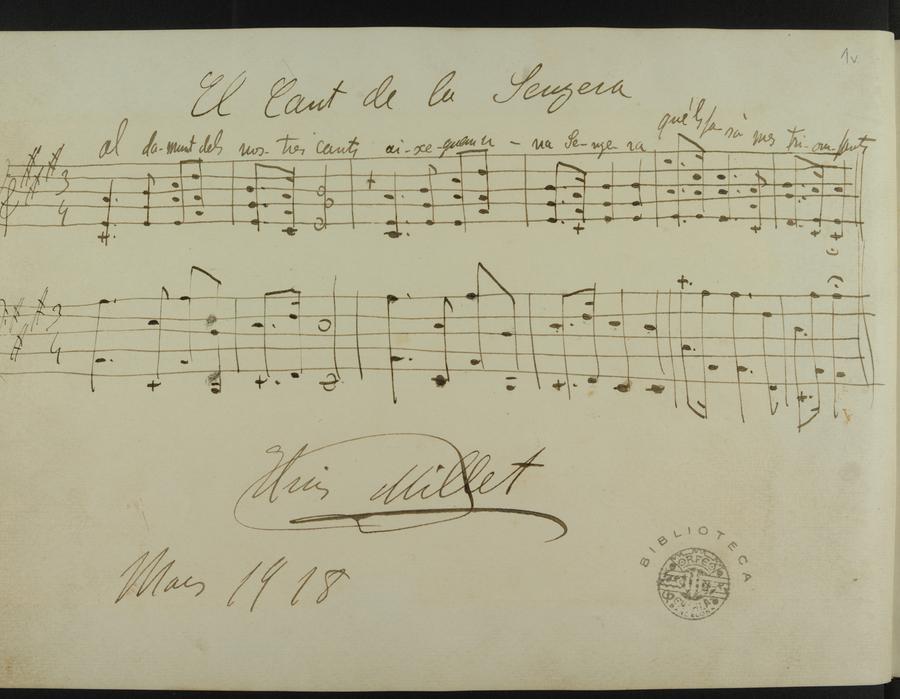 1v
El Cant de la Senyera
al da-munt dels nos-tres cants ai-xe-quem u - na Se-nye-ra que'ls fa-rà mes tri-om-fants
3
4
3
4
Lluis Millet
Mars 1918
BIBLIOTECA
ORFEÓ
CATALÀ
BARCELONA